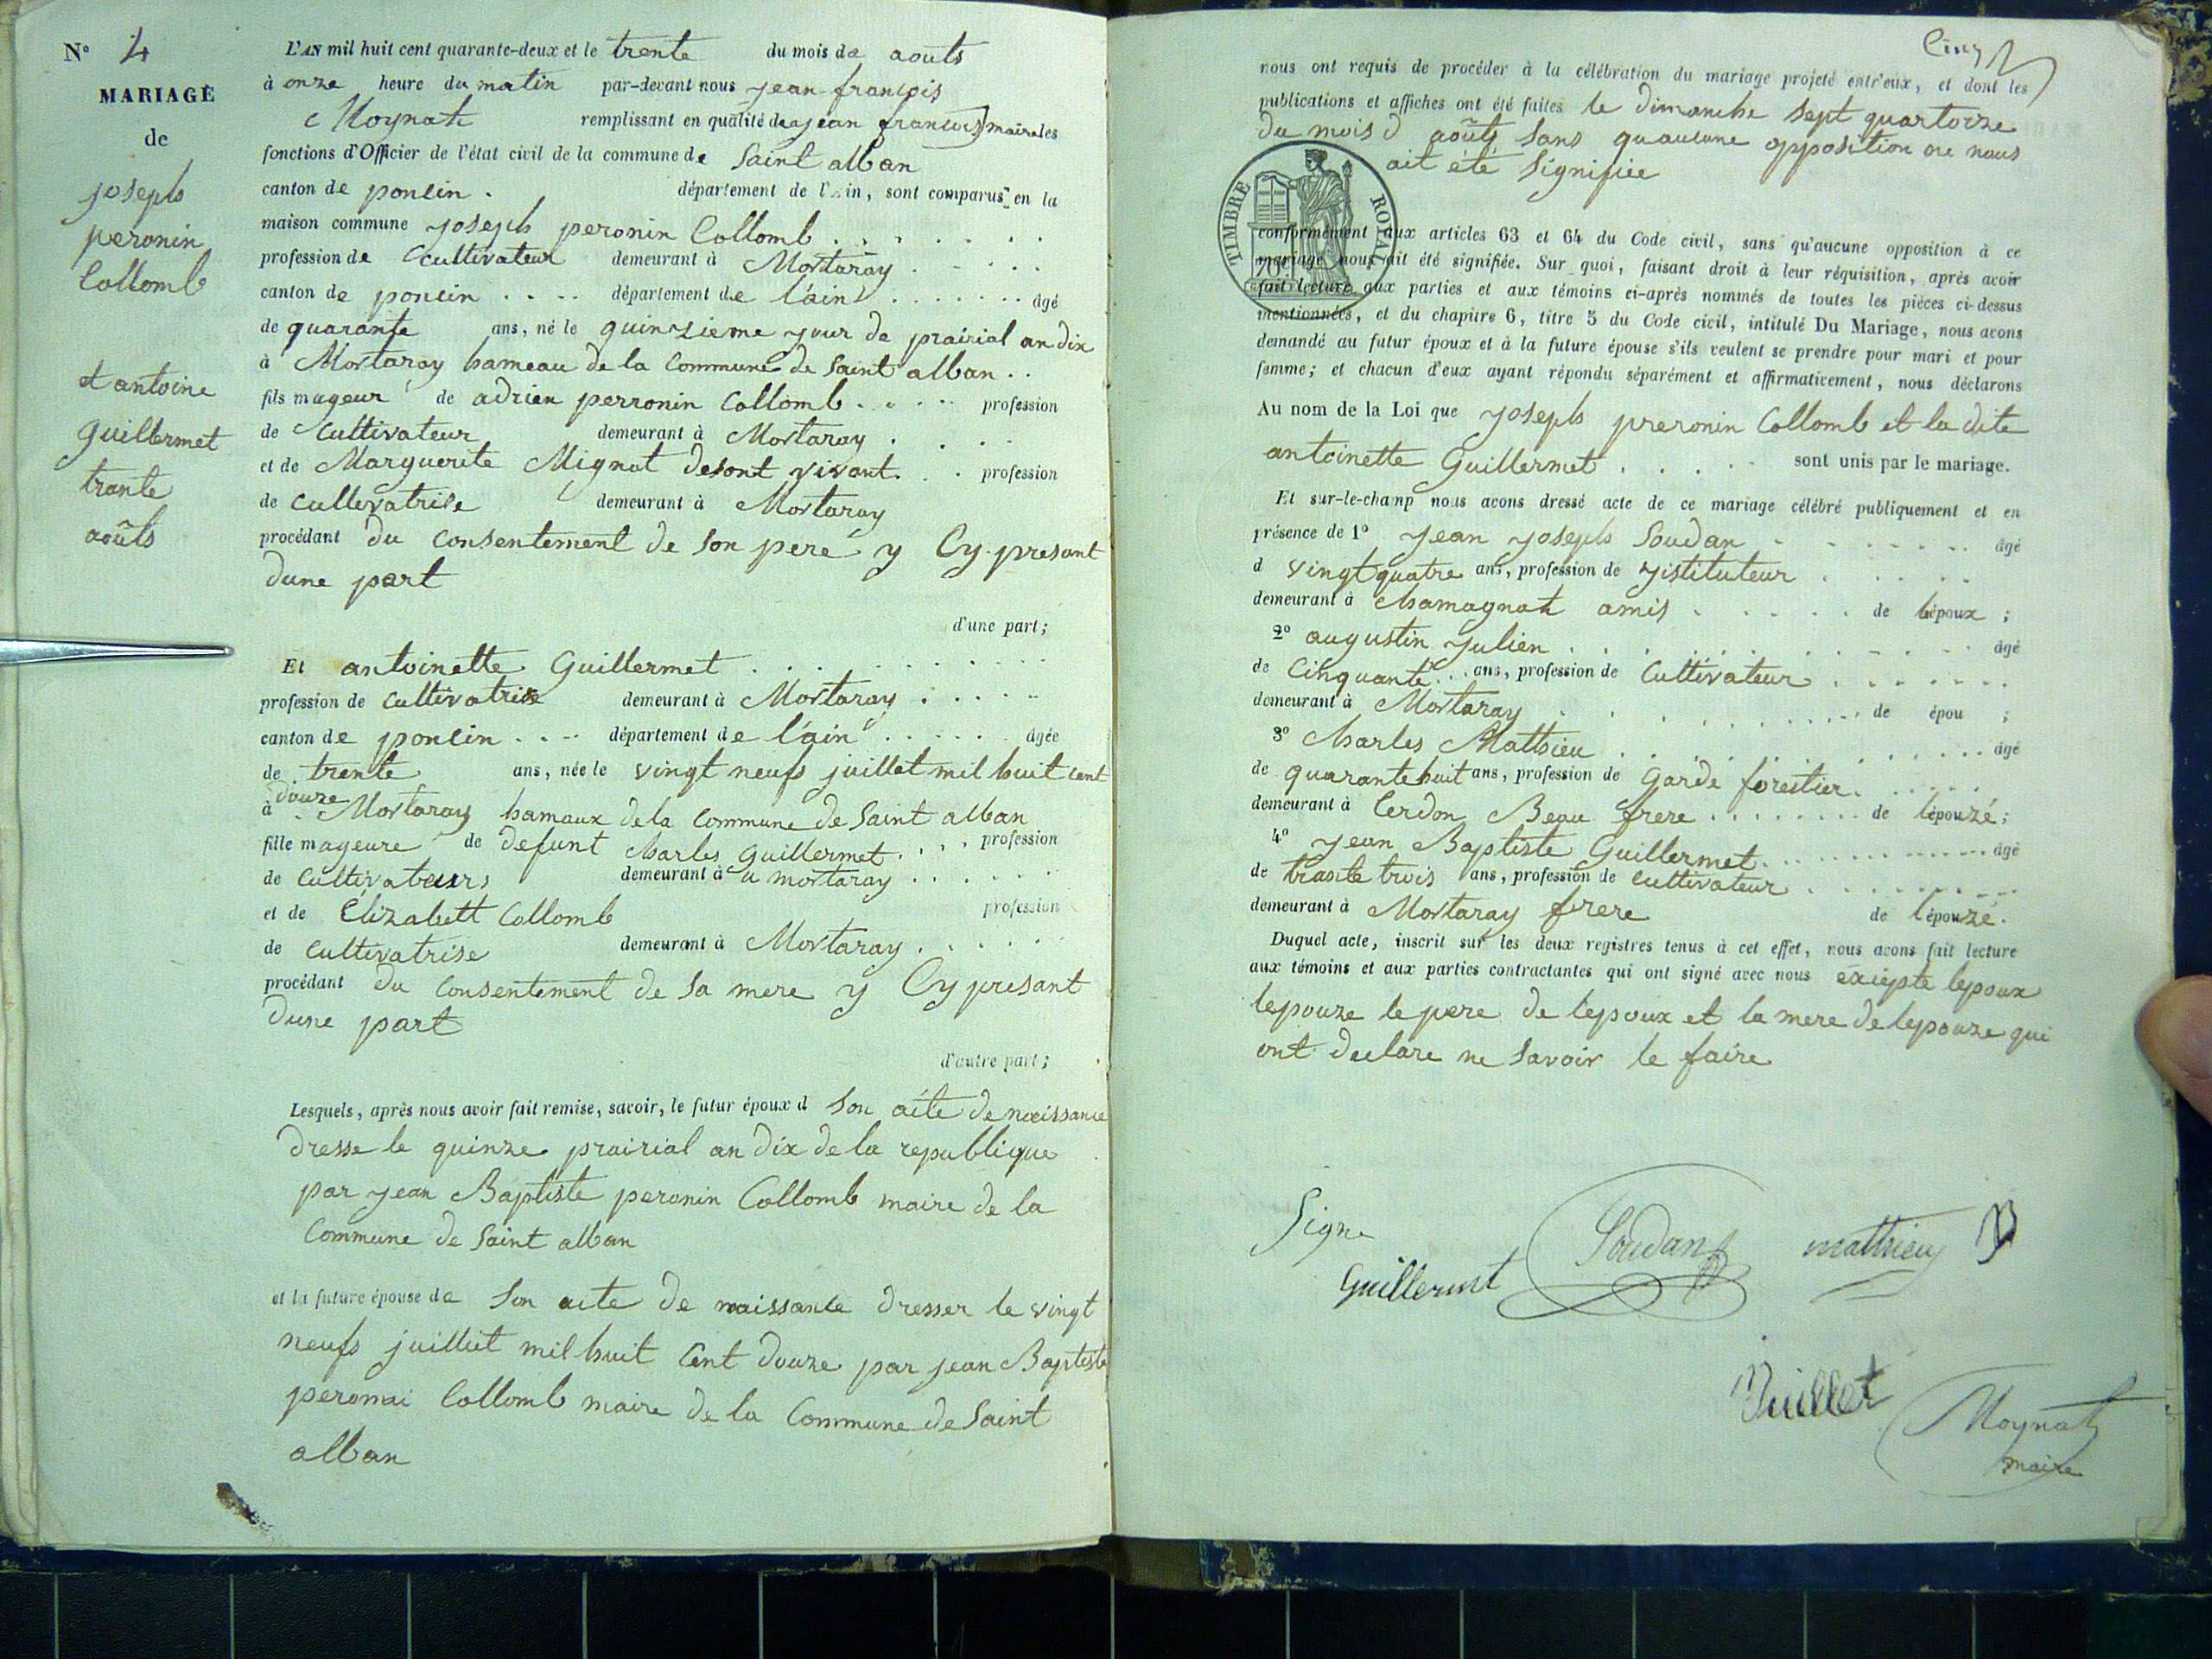 N° 4
MARIAGE
de
joseph
peronin
Collomb
et antoine
guillermet
trante
aoûts
L'AN mil huit cent quarante-deux et le trente du mois de aouts
à onze heure du matin par-devant nous jean francois
Moynat remplissant en qualité de jean francois maire les
fonctions d'Officier de l'état civil de la commune de Saint alban
canton de poncin . département de l'Ain, sont comparus en la
maison commune joseph peronin Collomb . . . . . . .
profession de Cultivateur demeurant à Mortaray . . . .
canton de poncin . . . . département de l'ain . . . . . . . âgé
de quarante ans, né le quinzieme jour de prairial an dix
à Mortaray hameau de la Commune de Saint alban . .
fils mageur de adrien perronin Collomb . . . . . profession
de Cultivateur demeurant à Mortaray . . . .
et de Marguerite Mignat desont vivant . . profession
de cultivatrise demeurant à Mortaray
procédant du Consentement de son pere y Cy presant
dune part
d'une part;
Et antoinette Guillermet . . . . . . . . . .
profession de cultivatrise demeurant à Mortaray . . . . .
canton de poncin . . . . département de l'ain . . . . . . âgée
de trente ans, née le vingt neufs juillet mil huit cent
douze
à Mortaray hamaux dela Commune de Saint alban
fille mageure de defunt Charles Guillermet . . . . profession
de Cultivateurs demeurant à a mortaray . . . . . .
et de Elizabett Collomb profession
de cultivatrise demeurant à Mortaray . . . . .
procédant du Consentement de sa mere y Cy presant
dune part
d'autre part;
Lesquels, après nous avoir fait remise, savoir, le futur époux d Son aite de naissance
dresse le quinze prairial an dix de la republique
par jean Baptiste peronin Collomb maire de la
Commune de Saint alban
et la future épouse de Son aite de naissance dresser le vingt
neufs juilliet mil huit Cent douze par jean Baptiste
peronai Collomb maire de la Commune de Saint
alban
Cinq
nous ont requis de procéder à la célébration du mariage projeté entr'eux, et dont les
publications et affiches ont été faites le dimanche sept quartorze
du mois d aoûts sans quaucune opposition ne nous
ait été signifiée
TIMBRE ROYAL
conformément aux articles 63 et 64 du Code civil, sans qu'aucune opposition à ce
mariage nous ait été signifiée. Sur quoi, faisant droit à leur réquisition, après avoir
fait lecture aux parties et aux témoins ci-après nommés de toutes les pièces ci-dessus
mentionnées, et du chapitre 6, titre 5 du Code civil, intitulé Du Mariage, nous avons
demandé au futur époux et à la future épouse s'ils veulent se prendre pour mari et pour
femme; et chacun d'eux ayant répondu séparément et affirmativement, nous déclarons
Au nom de la Loi que joseph preronin Collomb et la dite
antoinette Guillermet . . . . . sont unis par le mariage.
Et sur-le-champ nous avons dressé acte de ce mariage célébré publiquement et en
présence de 1° jean joseph Soudan . . . . . . . âgé
d vingt quatre ans, profession de jistituteur . . . . .
demeurant à Chamagnat amis . . . . . de lépoux ;
2° augustin julien . . . . . . . . . . . âgé
de Cinquante . . . ans, profession de Cultivateur . . . . . . .
demeurant à Mortaray . . . . . . . . . de épou ;
3° Charles Mathieu . . . . . . . . . . . âgé
de quarante huit ans, profession de garde forestier . . . . . .
demeurant à Cerdon Beau frere . . . . . . . . de lépouzé ;
4° jean Baptiste Guillermet . . . . . . . . . . . âgé
de trante trois ans, profession de cultivateur . . . . . . . . .
demeurant à Mortaray frere de lépouzé.
Duquel acte, inscrit sur les deux registres tenus à cet effet, nous avons fait lecture
aux témoins et aux parties contractantes qui ont signé avec nous éxiepte lepoux
lepouze le pere de lepoux et la mere de lepouze qui
ont declare ne savoir le faire
Signe
Guillermet Soudan mathieu
Juillet
Moynat
maire